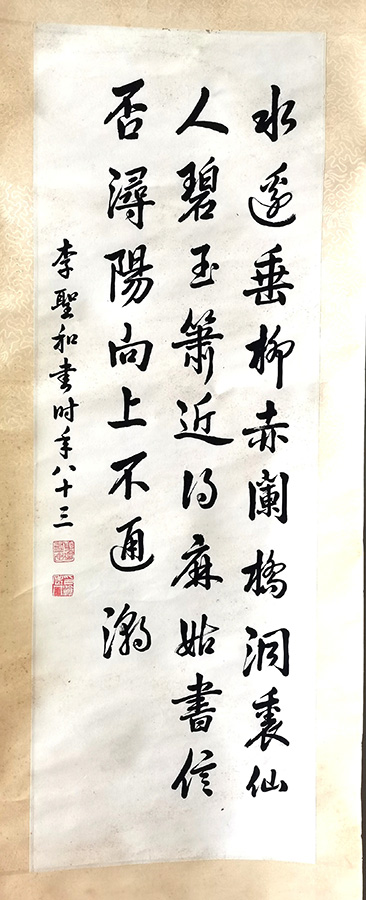 水邊垂柳赤闌橋洞裏仙
人碧玉簫近得麻姑書信
否潯陽向上不通潮
李聖和書时年八十三